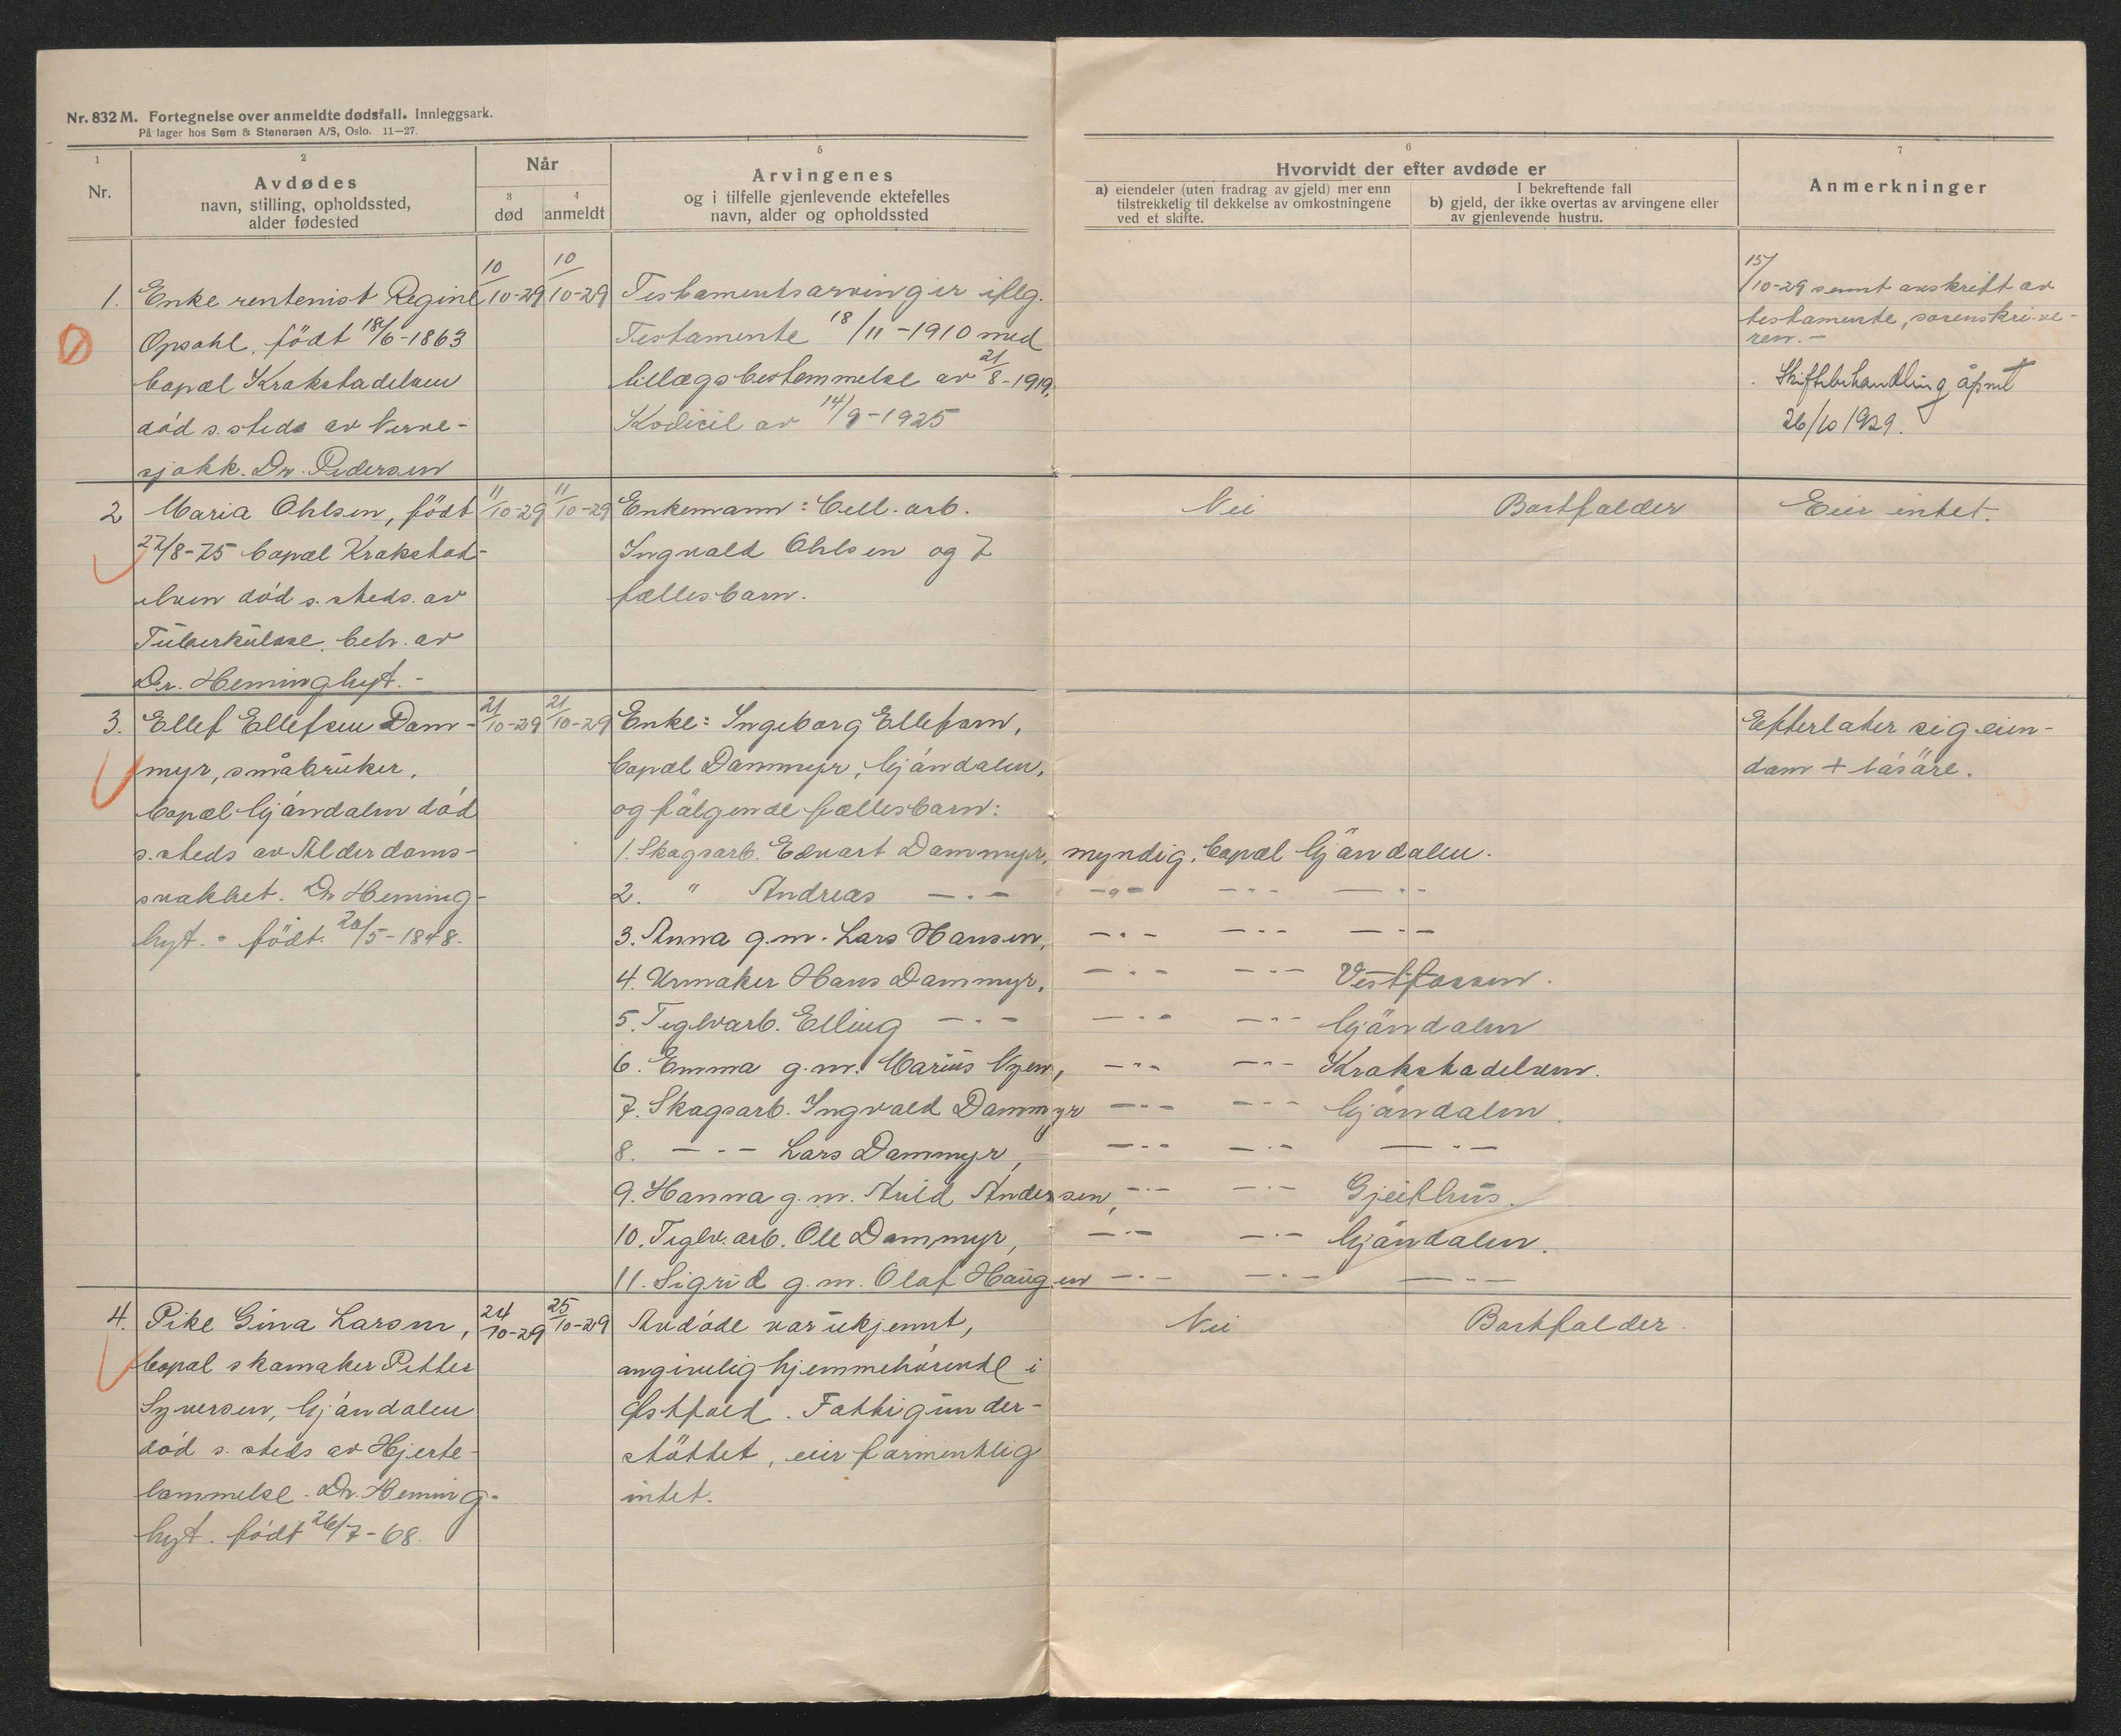 Nr. 832 M. Fortegnelse over anmeldte dødsfall. Innleggsark.
På lager hos Sem & Stenersen A/S, Oslo. 11—27.
1
Nr.
2
Avdødes
navn, stilling, opholdssted,
alder fødested
Når
3
død
4
anmeldt
5
Arvingenes
og i tilfelle gjenlevende ektefelles
navn, alder og opholdssted
6
Hvorvidt der efter avdøde er
a) eiendeler (uten fradrag av gjeld) mer enn
tilstrekkelig til dekkelse av omkostningene
ved et skifte.
I bekreftende fall
b) gjeld, der ikke overtas av arvingene eller
av gjenlevende hustru.
7
Anmerkninger
1.
Enke rentenist Regine
Opsahl, født 18/6-1863
bopæl Krakstadelven
død s. steds av Nerve-
sjokk. Dr. Pedersen
10/10-29
10/10-29
Testamentsarvinger iflg.
Testamente 18/11-1910 med
tillægsbestemmelse av 21/8-1919.
Kodicil av 14/9-1925
15/10-29 sennt avskrift av
testamente, sorenskrive-
ren.-
Skiftebehandling åpnet
26/10 1929.
2
Maria Ohlsen, født
27/8-75 bopæl Krakstad-
elven død s. steds. av
Tuberkulose. beh. av
Dr. Heminghyt.-
11/10-29
11/10-29
Enkemann: Cell. arb.
Ingvald Ohlsen og 7
fællesbarn.
Nei
Bortfalder
Eier intet.
3.
Ellef Ellefsen Dam-
myr, småbruker,
bopæl Mjøndalen død
s. steds av Alderdoms-
svakhet. Dr. Heming-
hyt. - født. 20/5-1848.
21/10-29
21/10-29
Enke: Ingeborg Ellefsen,
bopæl Dammyr, Mjøndalen,
og følgende fællesbarn:
1. Skogsarb. Edvart Dammyr, myndig, bopæl Mjøndalen.
2. " Andreas -.- -"- -.- -.-
3. Anna g.m. Lars Hansen, -.- -.- -.-
4. Urmaker Hans Dammyr, -.- -.- Vestfossen.
5. Teglvarb. Elling -.- -.- -.- Mjøndalen
6. Emma g.m. Marius Nyen, -.- -.- Krakstadelven.
7. Skogsarb. Ingvald Dammyr -.- -.- Mjøndalen.
8. -.- Lars Dammyr, -.- -.- -.-
9. Hanna g.m. Arild Andersen, -.- -.- Gjeithus.
10. Teglv. arb. Ole Dammyr, -.- -.- Mjøndalen.
11. Sigrid g.m. Olaf Haugen -.- -.- -.-
Efterlater sig eien-
dom + løsøre.
4.
Pike Gina Larsen,
bopæl skomaker Petter
Syversen, Mjøndalen
død s. steds av Hjerte-
lammelse. Dr. Heming-
hyt. født 26/7-68.
24/10-29
25/10-29
Avdøde var ukjennt,
angivelig hjemmehørende i
Østfold. Fattigunder-
støttet, eier formentlig
intet.
Nei
Bortfalder.